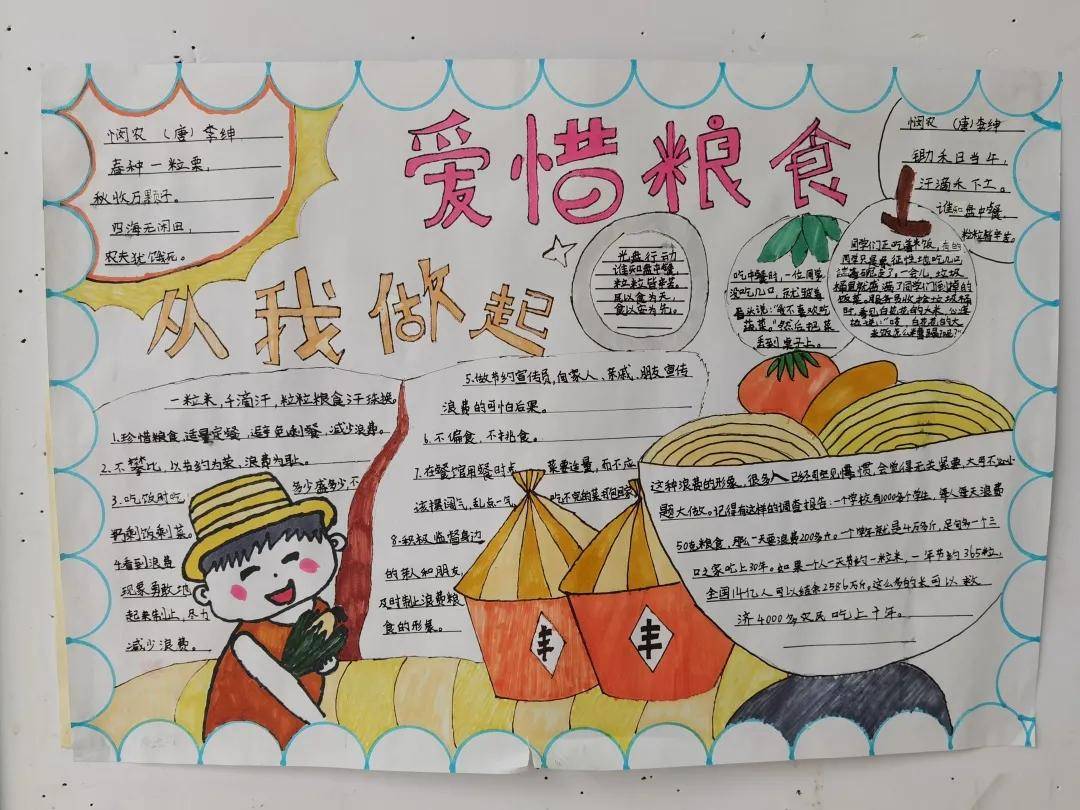 爱惜粮食
从我做起
悯农 (唐) 李绅
春种一粒栗,
秋收万颗子。
四海无闲田,
农夫犹饿死。
悯农 (唐)李绅
锄禾日当午,
汗滴禾下土。
谁知盘中餐
粒粒皆辛苦。
光盘行动
谁知盘中餐
粒粒皆辛苦。
民以食为天,
食以安为先。
吃中餐时,一位同学
没吃几口,就皱着
眉头说:“我不喜欢吃
蔬菜。”然后把菜
丢到桌子上。
同学们正吃着米饭,有的
同学只是象征性地吃几口
一会儿,垃圾
桶里就 满了同学们倒掉的
饭菜。服务员收拾垃圾桶
时,看见白花花的大米,心疼
地说:“唉,白花花的大
米饭怎么糟蹋呢?”
一粒米,千滴汗,粒粒粮食汗珠换。
1.珍惜粮食,适量定餐,避免剩餐,减少浪费。
2.不攀比,以节约为荣,浪费为耻。
3.吃饭时吃 多少盛多少,不
扔剩饭剩菜。
4.看到浪费
现象勇敢地
起来制止,尽力
减少浪费。
5.做节约宣传员,向家人、亲戚、朋友宣传
浪费的可怕后果。
6.不偏食,不挑食。
7.在餐馆用餐时点 菜要适量,而不应
该摆阔气,乱点一气, 吃不完的菜打包回家
8.积极监督身边
的亲人和朋友,
及时制止浪费粮
食的形象。
丰
丰
这种浪费的形象,很多人已经司空见惯,会觉得无关紧要,大可不必小
题大做。记得有这样的调查报告:一个学校有1000多个学生,每人每天浪费
50克粮食,那么一天要浪费200多斤。一个学年就是4万多斤,足句多一个三
口之家吃上30年。如果一个人一天节约一粒米,一年节约365粒,
全国14亿人可以结余2586万斤,这么多的米可以救
济4000多农民吃上十年。